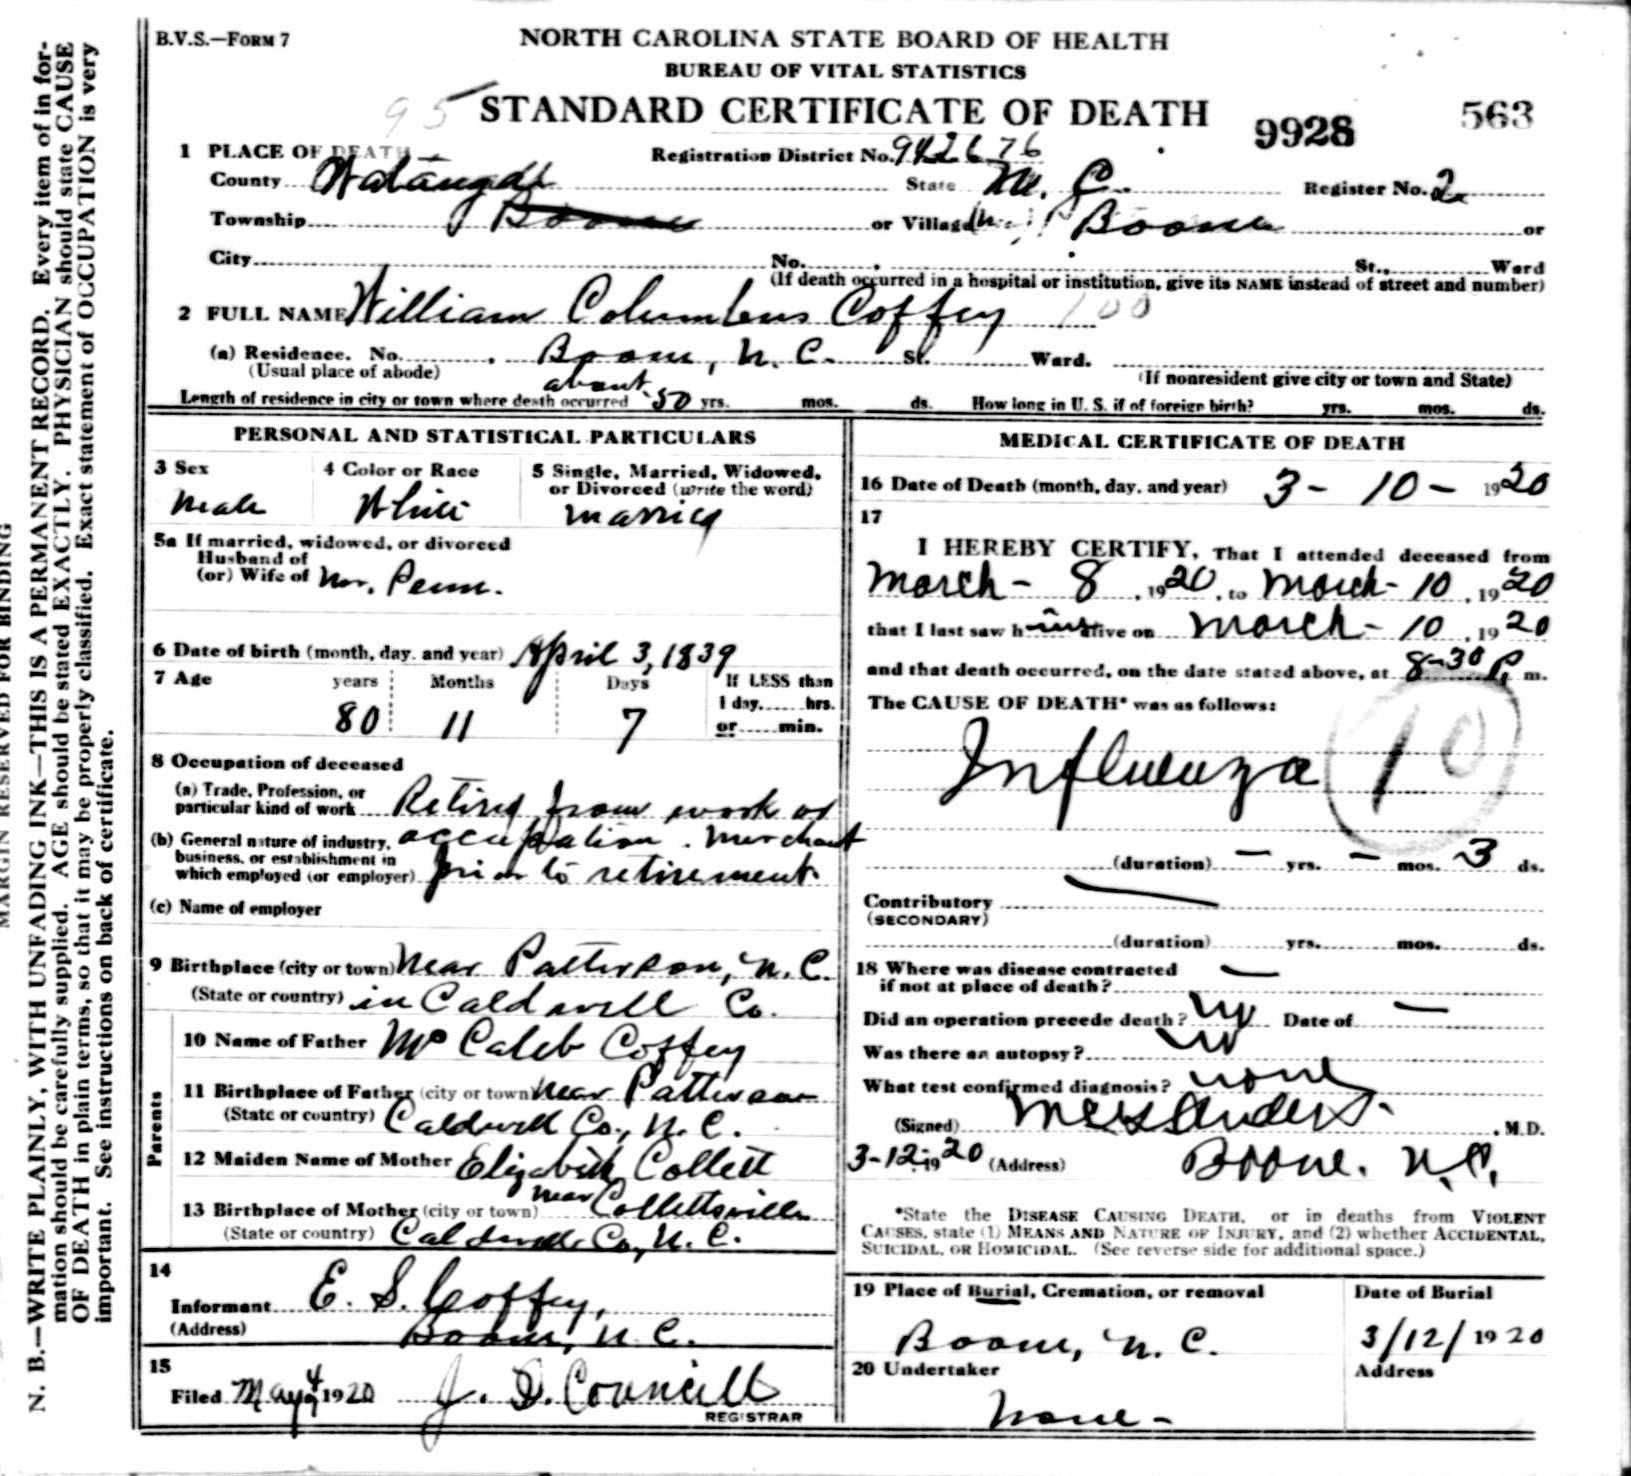 B.V.S.—FORM 7
NORTH CAROLINA STATE BOARD OF HEALTH
BUREAU OF VITAL STATISTICS
95
STANDARD CERTIFICATE OF DEATH
9928
563
1 PLACE OF DEATH
Registration District No. 942676
County Watauga State N. C. Register No. 2
Township Boone or Village Boone or
City No. St., Ward
(If death occurred in a hospital or institution, give its NAME instead of street and number)
2 FULL NAME William Columbus Coffey 100
(a) Residence. No. Boone, N. C. St. Ward.
(Usual place of abode) (If nonresident give city or town and State)
about
Length of residence in city or town where death occurred 50 yrs. mos. ds. How long in U. S. if of foreign birth? yrs. mos. ds.
PERSONAL AND STATISTICAL PARTICULARS
3 Sex 4 Color or Race 5 Single, Married, Widowed,
or Divorced (write the word)
Male White Married
5a If married, widowed, or divorced
Husband of
(or) Wife of Penn.
6 Date of birth (month, day, and year) April 3, 1839
7 Age years Months Days If LESS than
1 day, hrs.
80 11 7 or min.
8 Occupation of deceased
(a) Trade, Profession, or
particular kind of work Retired from work or
(b) General nature of industry, occupation. Merchant
business, or establishment in
which employed (or employer) prior to retirement
(c) Name of employer
9 Birthplace (city or town) Near Patterson, N. C.
(State or country) in Caldwell Co.
Parents
10 Name of Father Mc Caleb Coffey
11 Birthplace of Father (city or town) Near Patterson
(State or country) Caldwell Co., N. C.
12 Maiden Name of Mother Elizabeth Collett
13 Birthplace of Mother (city or town) near Collettsville
(State or country) Caldwell Co., N. C.
14
Informant E. S. Coffey,
(Address) Boone, N. C.
15
Filed May 4 1920 J. D. Councill
REGISTRAR
MEDICAL CERTIFICATE OF DEATH
16 Date of Death (month, day, and year) 3 - 10 - 1920
17
I HEREBY CERTIFY, That I attended deceased from
March - 8, 1920, to March - 10, 1920
that I last saw him alive on March - 10, 1920
and that death occurred, on the date stated above, at 8-30 P. m.
The CAUSE OF DEATH* was as follows:
Influenza 10
(duration) — yrs. — mos. 3 ds.
Contributory —
(SECONDARY)
(duration) yrs. mos. ds.
18 Where was disease contracted
if not at place of death? —
Did an operation precede death? no Date of —
Was there an autopsy? no
What test confirmed diagnosis? none
(Signed) M.D.
3-12-1920 (Address) Boone. N.C.
*State the DISEASE CAUSING DEATH, or in deaths from VIOLENT
CAUSES, state (1) MEANS AND NATURE OF INJURY, and (2) whether ACCIDENTAL,
SUICIDAL, OR HOMICIDAL. (See reverse side for additional space.)
19 Place of Burial, Cremation, or removal Date of Burial
Boone, N. C. 3/12/1920
20 Undertaker Address
None -
MARGIN RESERVED FOR BINDING
N. B.—WRITE PLAINLY, WITH UNFADING INK—THIS IS A PERMANENT RECORD. Every item of in for-
mation should be carefully supplied. AGE should be stated EXACTLY. PHYSICIAN should state CAUSE
OF DEATH in plain terms, so that it may be properly classified. Exact statement of OCCUPATION is very
important. See instructions on back of certificate.